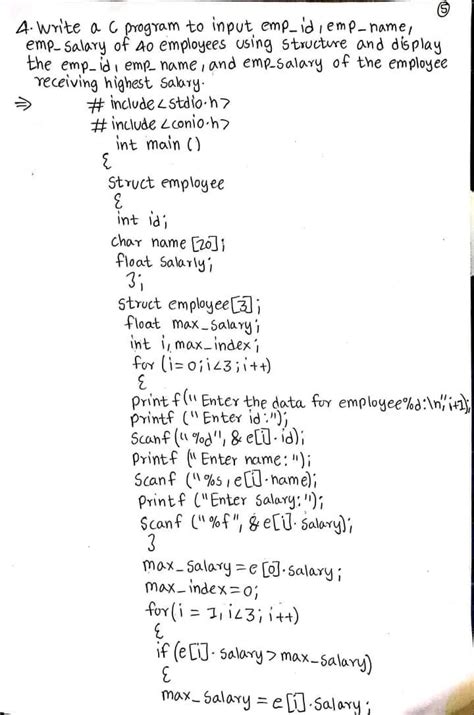 ⑤
4. Write a C program to input emp_id, emp_name,
emp_salary of 40 employees using structure and display
the emp_id, emp_name, and emp_salary of the employee
receiving highest salary.
⇒ # include<stdio.h>
# include <conio.h>
int main ()
{
struct employee
{
int id;
char name [20];
float salarly;
};
struct employee[3];
float max_salary;
int i, max_index;
for (i=0;i<3;i++)
{
printf("Enter the data for employee%d:\n",i+1);
printf ("Enter id:");
scanf("%d", & e[i].id);
printf ("Enter name: ");
scanf ("%s, e[i].name);
printf ("Enter salary:");
scanf ("%f", & e[i].salary);
}
max_salary = e [0].salary;
max_index=0;
for(i = 1, i<3; i++)
{
if (e[i].salary > max_salary)
{
max_salary = e[i].salary;